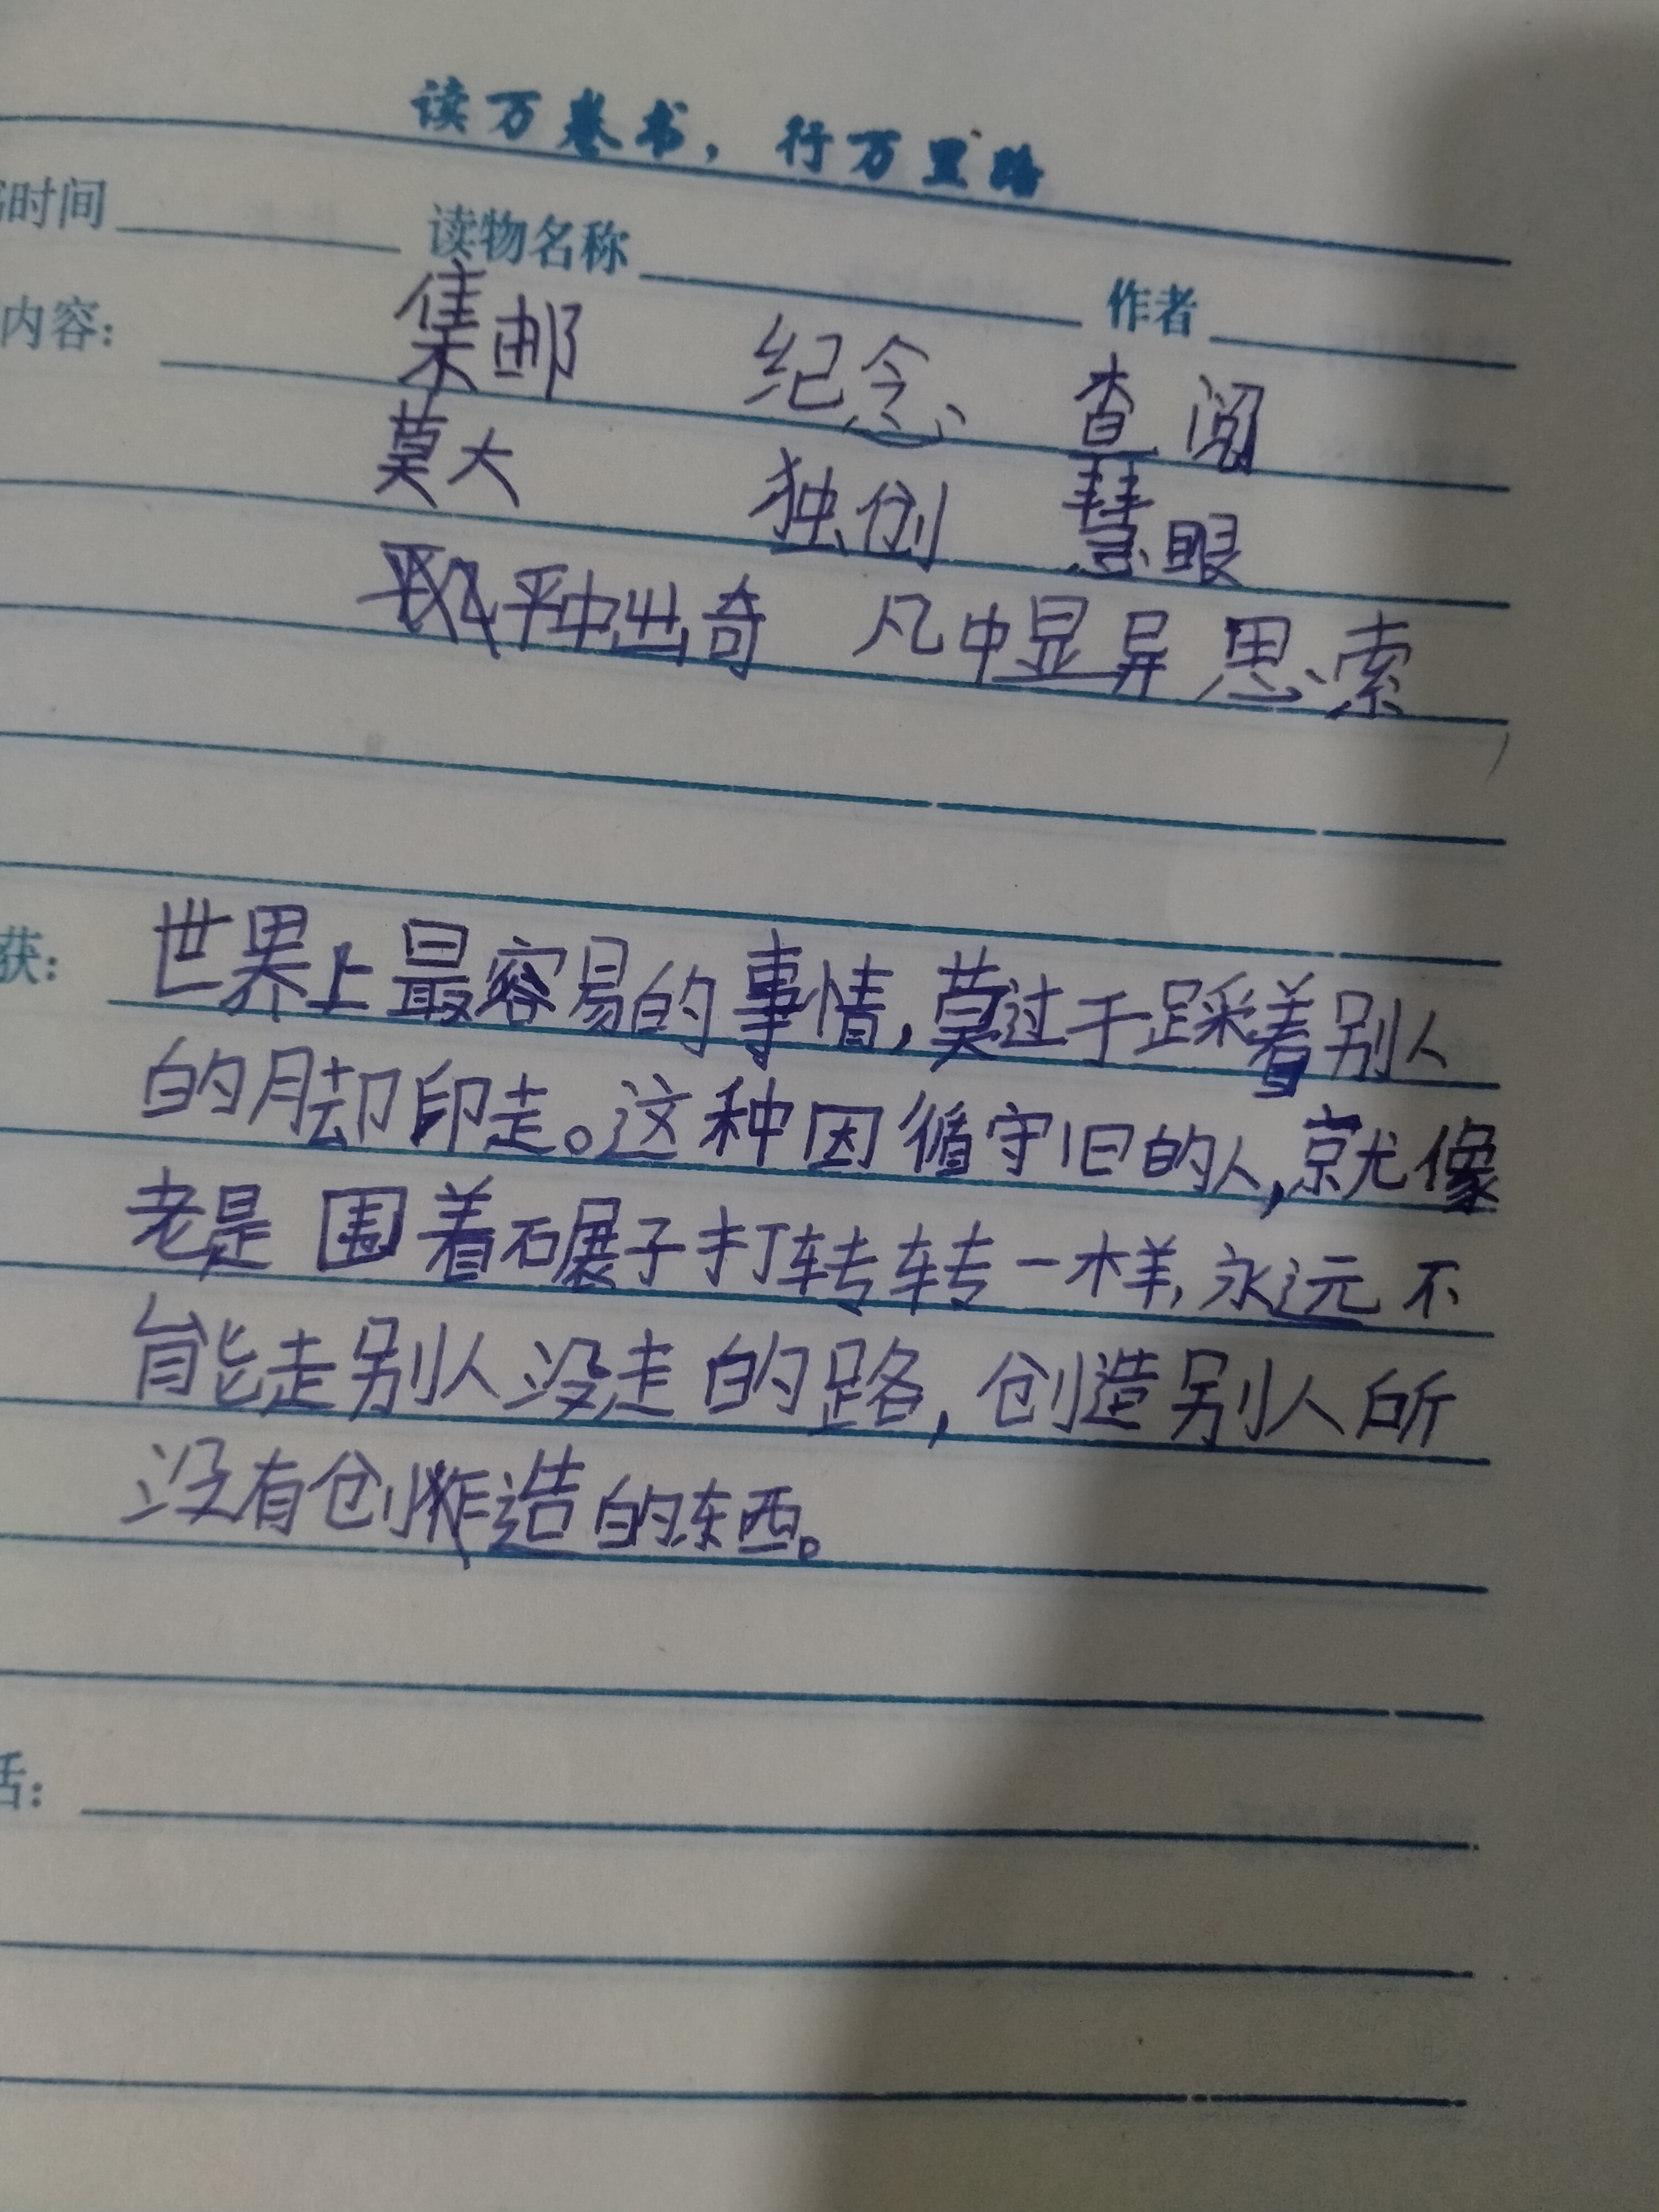 读万卷书，行万里路
时间 读物名称 作者
内容： 集邮 纪念 查阅
莫大 独创 慧眼
平中出奇 凡中显异 思索
获： 世界上最容易的事情，莫过于踩着别人
的脚印走。这种因循守旧的人，就像
老是围着碾子打转转一样，永远不
能走别人没走的路，创造别人所
没有创造的东西。
话：